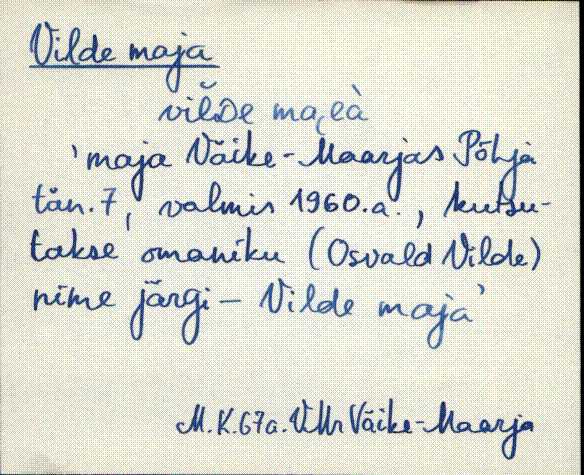 Vilde maja
vilDe maea
'maja Väike-Maarjas Põhja
tän. 7, valmis 1960.a., kutsu-
takse omaniku (Osvald Vilde)
nime järgi – Vilde maja'
M.K.67a. VMr Väike-Maarja